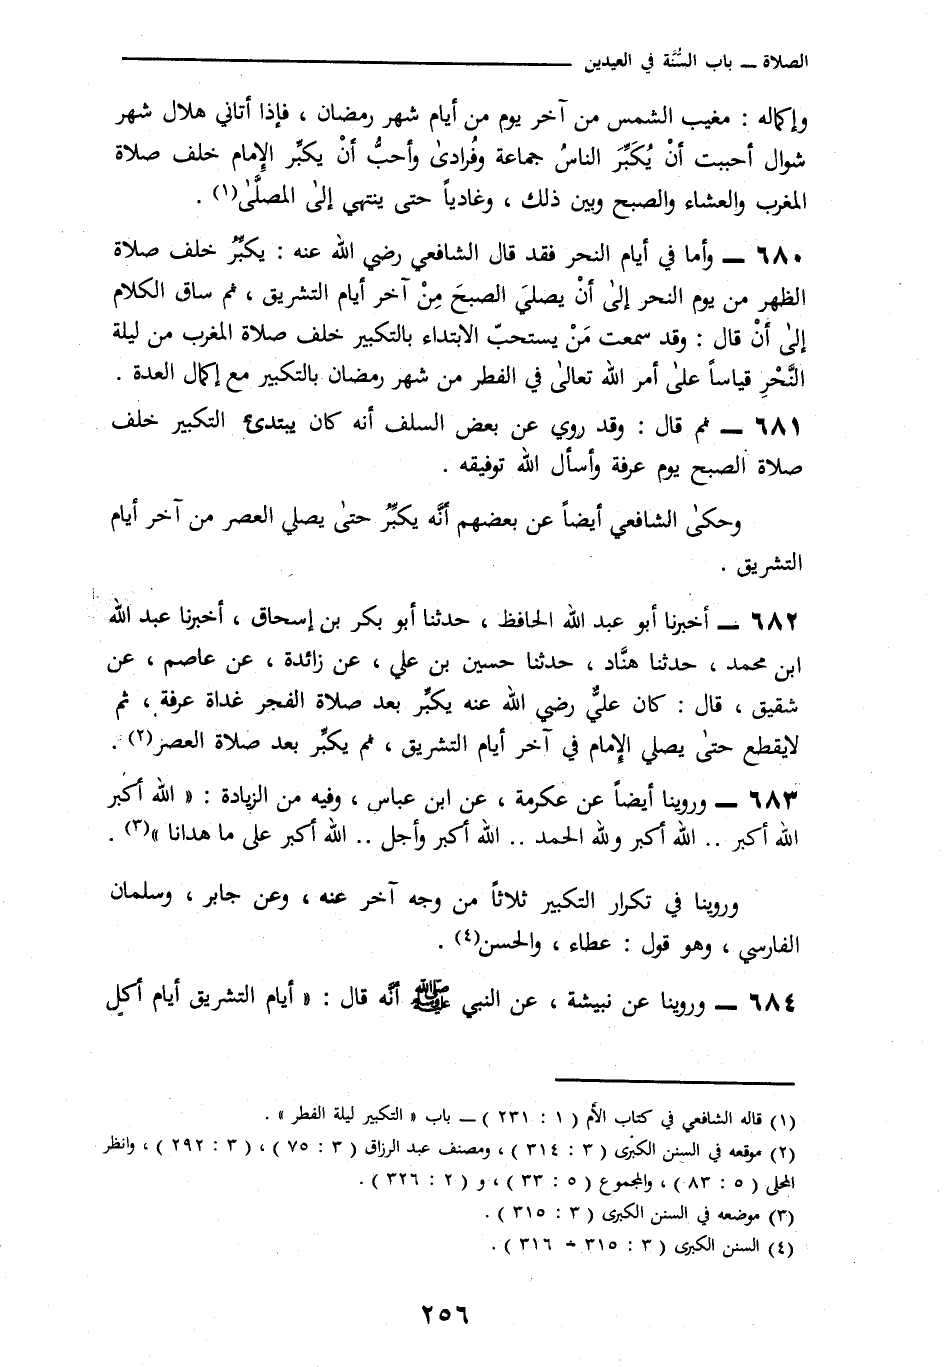 الصلاة ــ باب السُّنَّة في العيدين
وإكماله : مغيب الشمس من آخر يوم من أيام شهر رمضان ، فإذا أتاني هلال شهر
شوال أحببت أنْ يُكَبِّرَ الناسُ جماعة وفُرادىٰ وأحبُّ أنْ يكبِّر الإمام خلف صلاة
المغرب والعشاء والصبح وبين ذلك ، وغادياً حتى ينتهي إلىٰ المصلَّىٰ(١) .
٦٨٠ ــ وأما في أيام النحر فقد قال الشافعي رضي الله عنه : يكبِّرُ خلف صلاة
الظهر من يوم النحر إلىٰ أنْ يصليَ الصبحَ مِنْ آخر أيام التشريق ، ثم ساق الكلام
إلىٰ أنْ قال : وقد سمعت مَنْ يستحبّ الابتداء بالتكبير خلف صلاة المغرب من ليلة
النَّحْرِ قياساً علىٰ أمر الله تعالىٰ في الفطر من شهر رمضان بالتكبير مع إكمال العدة .
٦٨١ ــ ثم قال : وقد روي عن بعض السلف أنه كان يبتدئ التكبير خلف
صلاة الصبح يوم عرفة وأسأل الله توفيقه .
وحكىٰ الشافعي أيضاً عن بعضهم أنَّه يكبِّرُ حتىٰ يصلي العصر من آخر أيام
التشريق .
٦٨٢ ــ أخبرنا أبو عبد الله الحافظ ، حدثنا أبو بكر بن إسحاق ، أخبرنا عبد الله
ابن محمد ، حدثنا هنَّاد ، حدثنا حسين بن علي ، عن زائدة ، عن عاصم ، عن
شقيق ، قال : كان عليٌّ رضي الله عنه يكبِّر بعد صلاة الفجر غداة عرفة ، ثم
لايقطع حتىٰ يصلي الإمام في آخر أيام التشريق ، ثم يكبِّر بعد صلاة العصر(٢) .
٦٨٣ ــ وروينا أيضاً عن عكرمة ، عن ابن عباس ، وفيه من الزيادة : « الله أكبر
الله أكبر .. الله أكبر ولله الحمد .. الله أكبر وأجل .. الله أكبر على ما هدانا »(٣) .
وروينا في تكرار التكبير ثلاثاً من وجه آخر عنه ، وعن جابر ، وسلمان
الفارسي ، وهو قول : عطاء ، والحسن(٤) .
٦٨٤ ــ وروينا عن نبيشة ، عن النبي ﷺ أنَّه قال : « أيام التشريق أيام أكل
(١) قاله الشافعي في كتاب الأم ( ١ : ٢٣١ ) ــ باب « التكبير ليلة الفطر » .
(٢) موقعه في السنن الكبرى ( ٣ : ٣١٤ ) ، ومصنف عبد الرزاق ( ٣ : ٧٥ ) ، ( ٣ : ٢٩٢ ) ، وانظر
المحلى ( ٥ : ٨٣ ) ، والمجموع ( ٥ : ٣٣ ) ، و ( ٢ : ٣٢٦ ) .
(٣) موضعه في السنن الكبرى ( ٣ : ٣١٥ ) .
(٤) السنن الكبرى ( ٣ : ٣١٥ - ٣١٦ ) .
٢٥٦